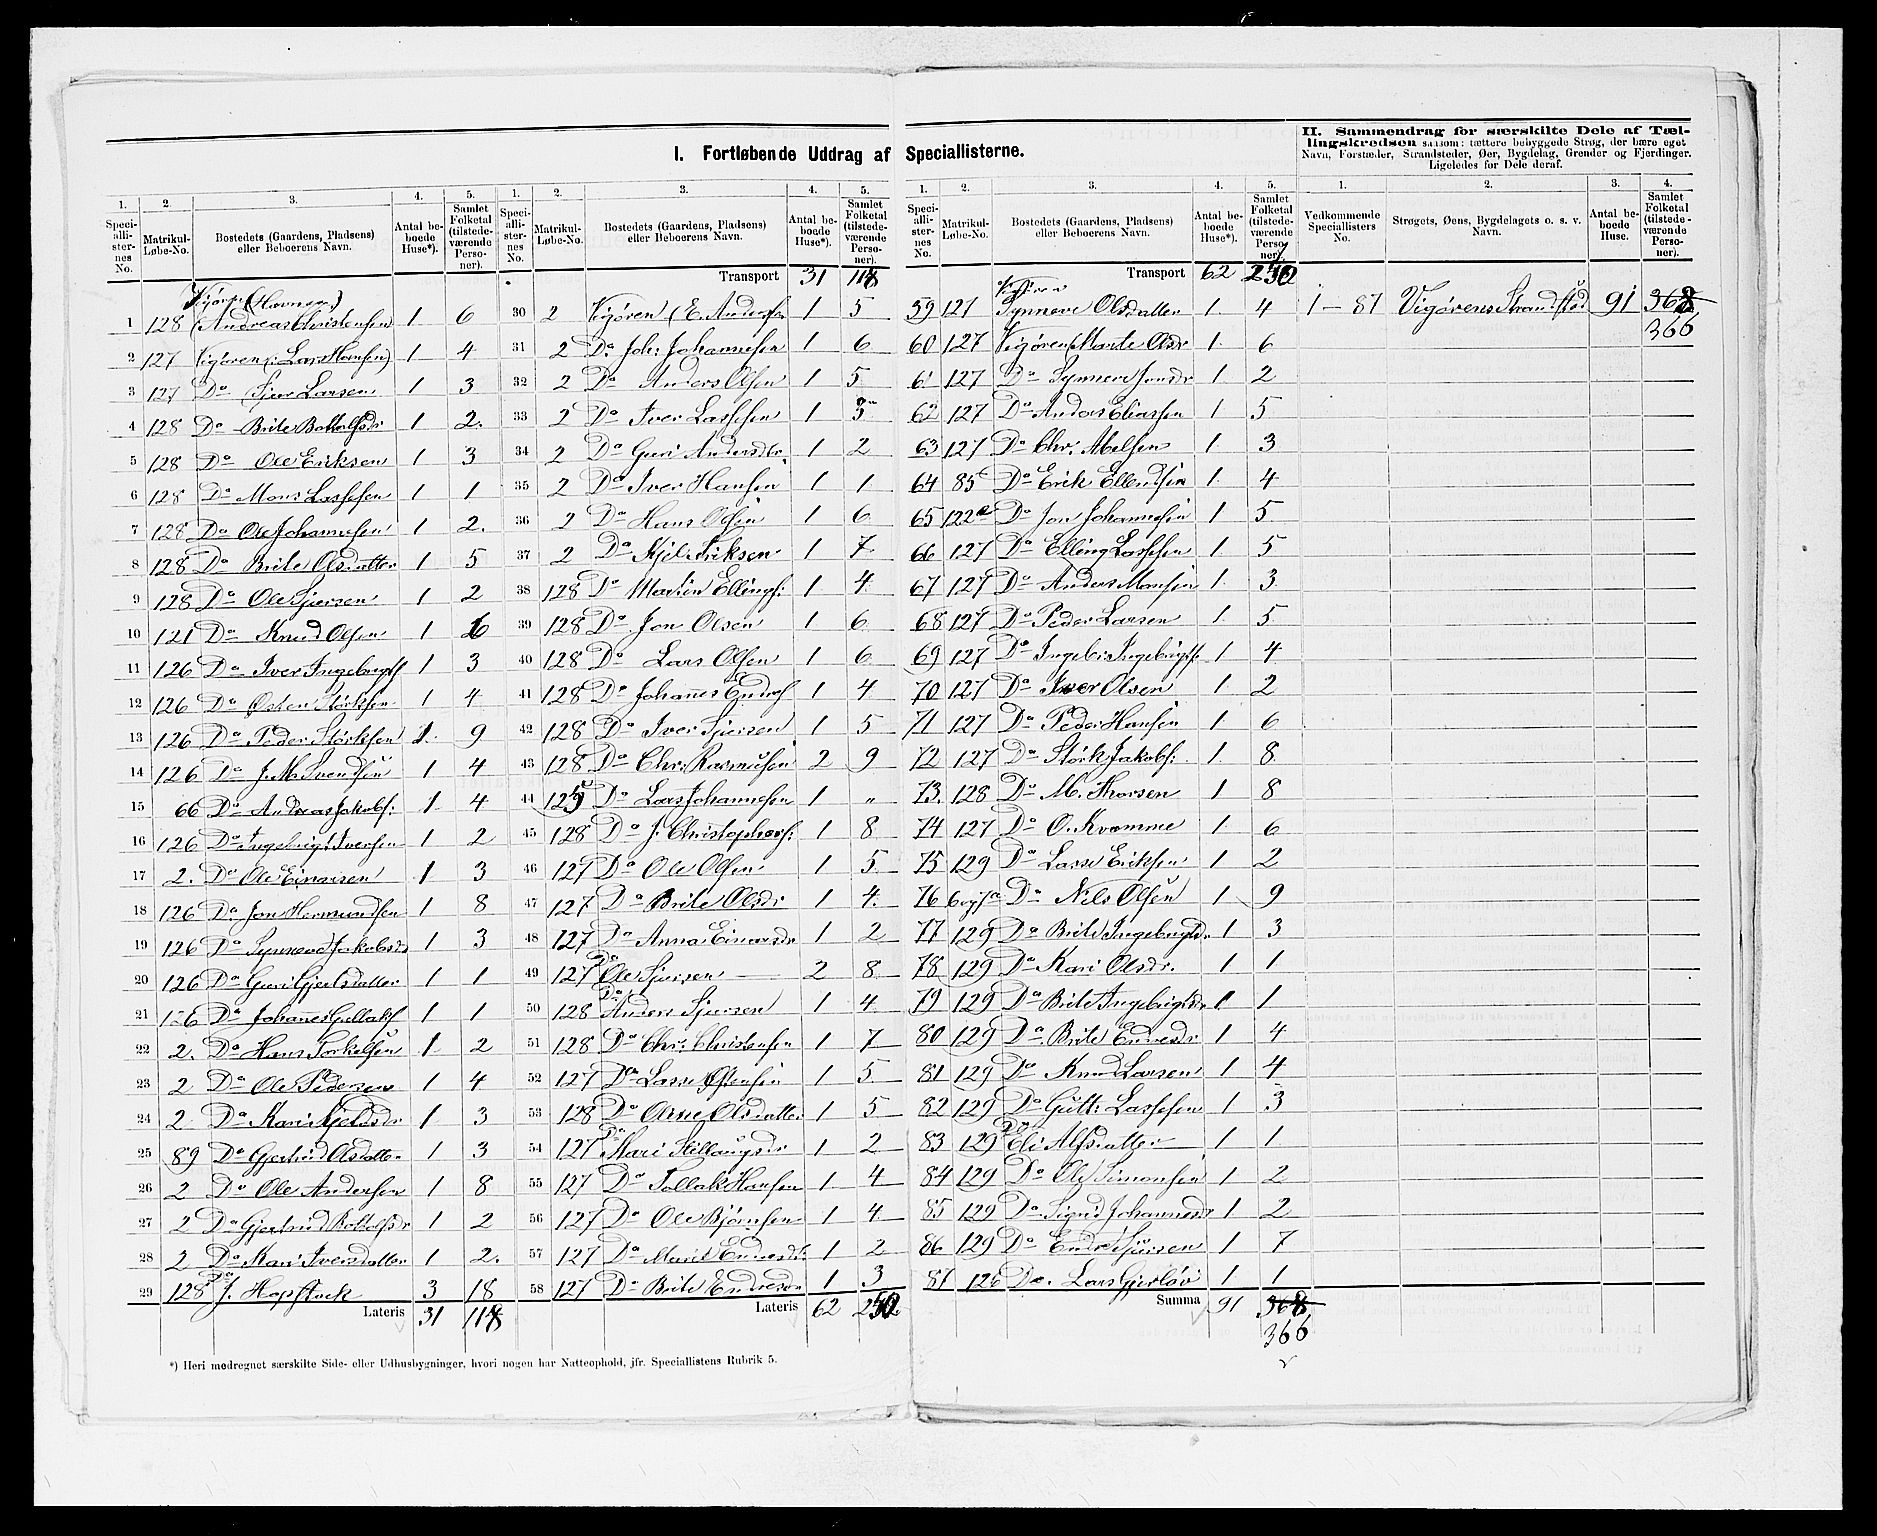 I. Fortløbende Uddrag af Speciallisterne.
II. Sammendrag for særskilte Dele af Tæl-
lingskredsen saasom: tættere bebyggede Strøg, der bære eget
Navn, Forstæder, Strandsteder, Øer, Bygdelag, Grender og Fjerdinger.
Ligeledes for Dele deraf.
1. 2. 3. 4. 5.
Speciallisternes No. Matrikul-Løbe-No. Bostedets (Gaardens, Pladsens) eller Beboerens Navn. Antal beboede Huse*). Samlet Folketal (tilstedeværende Personer).
Vigøren (Havnen)
1 128 (Andreas Christensen) 1 6
2 127 Vigøren (Lars Hansen) 1 4
3 127 Do Sjur Larsen 1 3
4 128 Do Brite Bottolfsdr 1 2.
5 128 Do Ole Eriksen 1 3
6 128 Do Mons Lassesen 1 1
7 128 Do Ole Johannesen 1 2.
8 128 Do Brite Olsdatter 1 5
9 128 Do Ole Sjursen 1 2
10 121 Do Knud Olsen 1 6
11 126 Do Iver Ingebrigts 1 3
12 126 Do Østen Størksen 1 4
13 126 Do Peder Størksen 1. 9
14 126 Do J. M. Svendsen 1 4
15 66 Do Andreas Jakobs: 1. 4
16 126 Do Ingebrigt Iversen 1 2
17 2. Do Ole Einarsen 1 3
18 126 Do Jon Hermundsen 1 8
19 126 Do Synneve Jakobsdr 1 3
20 126 Do Guri Gjertsdatter 1 1
21 126 Do Johanes Gullaks 1 1
22 2. Do Hans Torkelsen 1. 2
23 2 Do Ole Pedersen 1 4
24 2 Do Kari Kjeldsdr 1 3
25 89 Do Gjertrud Olsdatter 1 3
26 2 Do Ole Andersen 1 8
27 2 Do Gjertrud Bottolfsdr 1 2
28 2 Do Kari Iversdatter 1 2.
29 128 Do J. Hopstock 3 18
Lateris 31 118
*) Heri medregnet særskilte Side- eller Udhusbygninger, hvori nogen har Natteophold, jfr. Speciallistens Rubrik 5.
1. 2. 3. 4. 5.
Speciallisternes No. Matrikul-Løbe-No. Bostedets (Gaardens, Pladsens) eller Beboerens Navn. Antal beboede Huse*). Samlet Folketal (tilstedeværende Personer).
Transport 31 118
30 2 Vigøren (E. Andersen 1 5
31 2 Do Joh: Johannesen 1 6
32 2 Do Anders Olsen 1 5
33 2 Do Iver Lassesen 1
34 2 Do Guri Andersdr. 1 2
35 2 Do Iver Hansen 1 1
36 2 Do Hans Olsen 1 6
37 2 Do Kjel Eriksen 1 7
38 128 Do Martin Ellings: 1 4
39 128 Do Jon Olsen 1 6
40 128 Do Lars Olsen 1 6
41 128 Do Johanes Endres 1 4
42 128 Do Iver Sjursen 1 5
43 128 Do Chr: Rasmusen 2 9
44 125 Do Lars Johannesen 1 "
45 128 Do J. Christophers: 1 8
46 127 Do Ole Olsen 1 5
47 127 Do Brite Olsdr 1 4.
48 127 Do Anna Einarsdr 1 2
49 127 Do Ole Sjursen 2 8
50 128 Do Anders Sjursen 1 4.
51 128 Do Chr: Christensen 1 7
52 127 Do Lasse Østensen 1 5
53 128 Do Arne Olsdatter 1 5
54 127 Do Kari Stillaugsdr 1 2
55 127 Do Tollak Hansen 1 4
56 127 Do Ole Bjørnsen 1 4
57 127 Do Marit Endresdr 1 2
58 127 Do Brite Endresdr 1 3
Lateris 62
1. 2. 3. 4. 5.
Speciallisternes No. Matrikul-Løbe-No. Bostedets (Gaardens, Pladsens) eller Beboerens Navn. Antal beboede Huse*). Samlet Folketal (tilstedeværende Personer).
Transport 62
Vigøren
59 127 Synneve Olsdatter 1 4
60 127 Vigøren (Marite Olsdr 1 6
61 127 Do Synneve Jonsdr 1 2
62 127 Do Anders Eliassen 1 5
63 127 Do Chr. Melsen 1 3
64 85 Do Erik Ellendsen 1 4
65 122a Do Jon Johannesen 1 5
66 127 Do Elling Lassesen 1 5
67 127 Do Anders Monsen 1 3
68 127 Do Peder Larsen 1 5
69 127 Do Ingebr: Ingebrigts. 1 4
70 127 Do Iver Olsen 1 2
71 127 Do Peder Hansen 1 6
72 127 Do Størk Jakobs: 1 8
73. 128 Do M. Thorsen 1 8
74 127 Do O. Kvamme 1 6
75 129 Do Lasse Eriksen 1 2
76 Do Nils Olsen 1 9
77 129 Do Brite Ingebrigtdr 1 3
78 129 Do Kari Olsdr. 1 1
79 129 Do Brite Ingebrigtsdr 1 1
80 129 Do Brite Endresdr 1 4
81 129 Do Knud Larsen 1 4
82 129 Do Gutt: Lassesen 1 3
83 129 Do Eli Alfsdatter 1 1
84 129 Do Ole Simonsen 1 2
85 129 Do Sigrid Johannesdr 1 2
86 129 Do Endre Sjursen 1 7
87 126 Do. Lars Gjerløv 1 1
Summa 91 368
366
1. 2. 3. 4.
Vedkommende Speciallisters No. Strøgets, Øens, Bygdelagets o. s. v. Navn. Antal beboede Huse. Samlet Folketal (tilstedeværende Personer).
1 - 87 Vigørens Strandsted 91 368
366